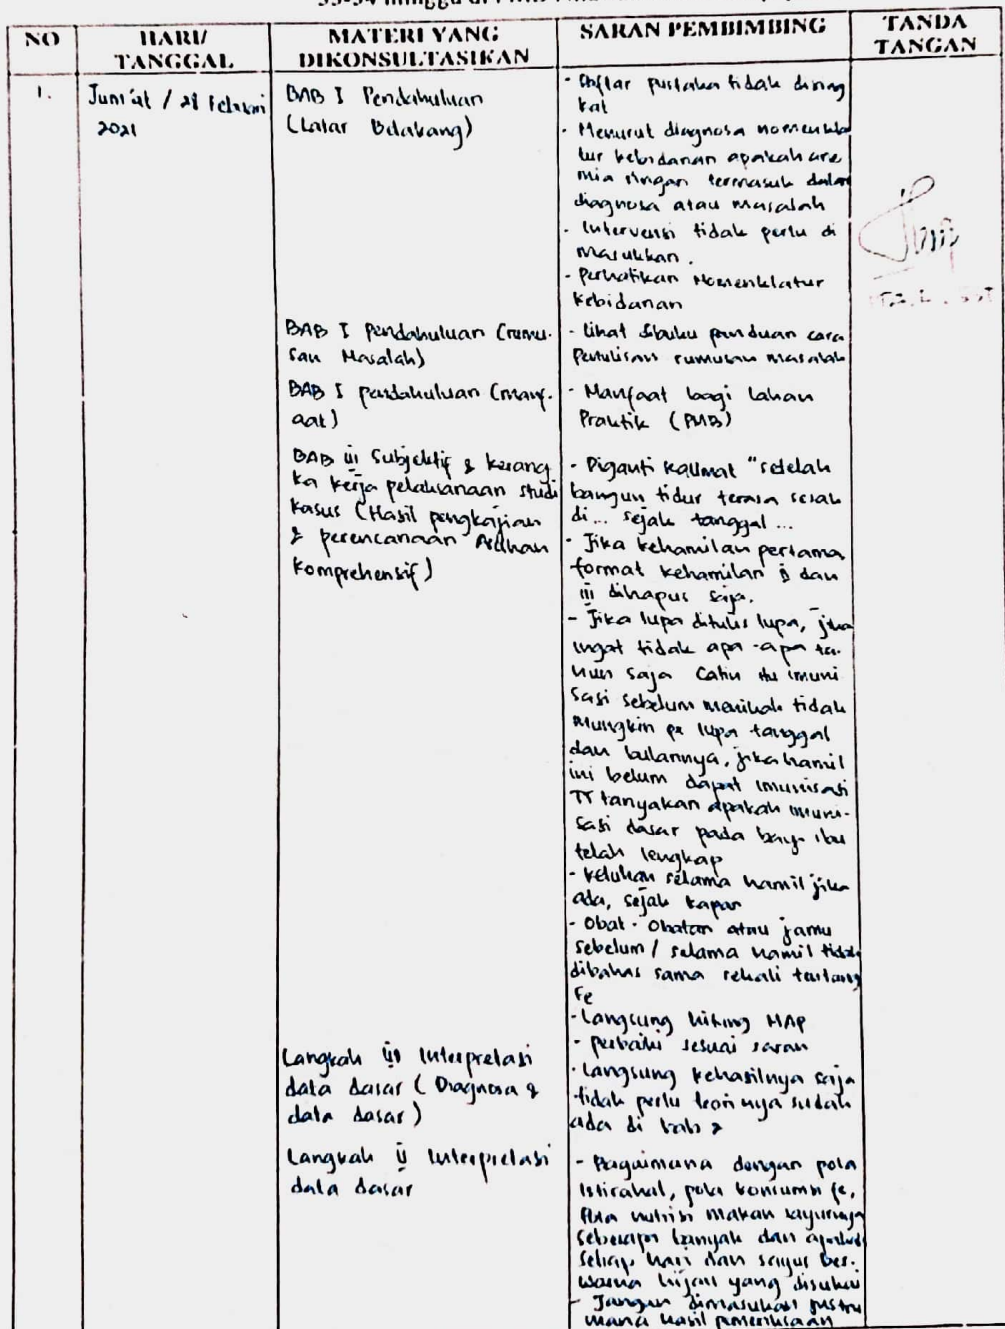 NO
HARI/
TANGGAL
MATERI YANG
DIKONSULTASIKAN
SARAN PEMBIMBING
TANDA
TANGAN
1.
Jum'at / Februari
2021
BAB I Pendahuluan
(Latar Belakang)
- Daftar pustaka tidak dising
kat
- Menurut diagnosa nomenkla
tur kebidanan apakah ane
mia ringan termasuk dalam
diagnosa atau masalah
- Intervensi tidak perlu di
masukkan.
- Perhatikan Nomenklatur
kebidanan
BAB I Pendahuluan (rumu-
san Masalah)
- lihat dibuku panduan cara
penulisan rumusan masalah
BAB I pendahuluan (manf-
aat)
- Manfaat bagi lahan
Praktik (PMB)
BAB iii Subjektif & kerang
ka kerja pelaksanaan studi
kasus (Hasil pengkajian
& perencanaan Asuhan
komprehensif)
- Diganti kalimat "setelah
bangun tidur terasa sesak
di... sejak tanggal ...
- Jika kehamilan pertama
format kehamilan ii dan
iii dihapus saja.
- Jika lupa ditulis lupa, jika
ingat tidak apa-apa ta-
hun saja catin itu imuni
sasi sebelum menikah tidak
mungkin px lupa tanggal
dan bulannya, jika hamil
ini belum dapat imunisasi
TT tanyakan apakah imuni-
sasi dasar pada bayi ibu
telah lengkap
- keluhan selama hamil jika
ada, sejak kapan
- Obat-Obatan atau jamu
sebelum / selama hamil tidak
dibahas sama sekali tentang
Fe
- Langsung hitung MAP
- perbaiki sesuai saran
Langkah Interpretasi
data dasar (Diagnosa &
data dasar)
- Langsung kehasilnya saja
tidak perlu teorinya sudah
ada di bab 2
Langkah ii Interpretasi
data dasar
- Bagaimana dengan pola
istirahat, pola konsumsi fe,
Pola nutrisi makan sayurnya
seberapa banyak dan apakah
setiap hari dan sayur ber-
warna hijau yang disukai
- Jangan dimasukan
mana hasil pemeriksaan